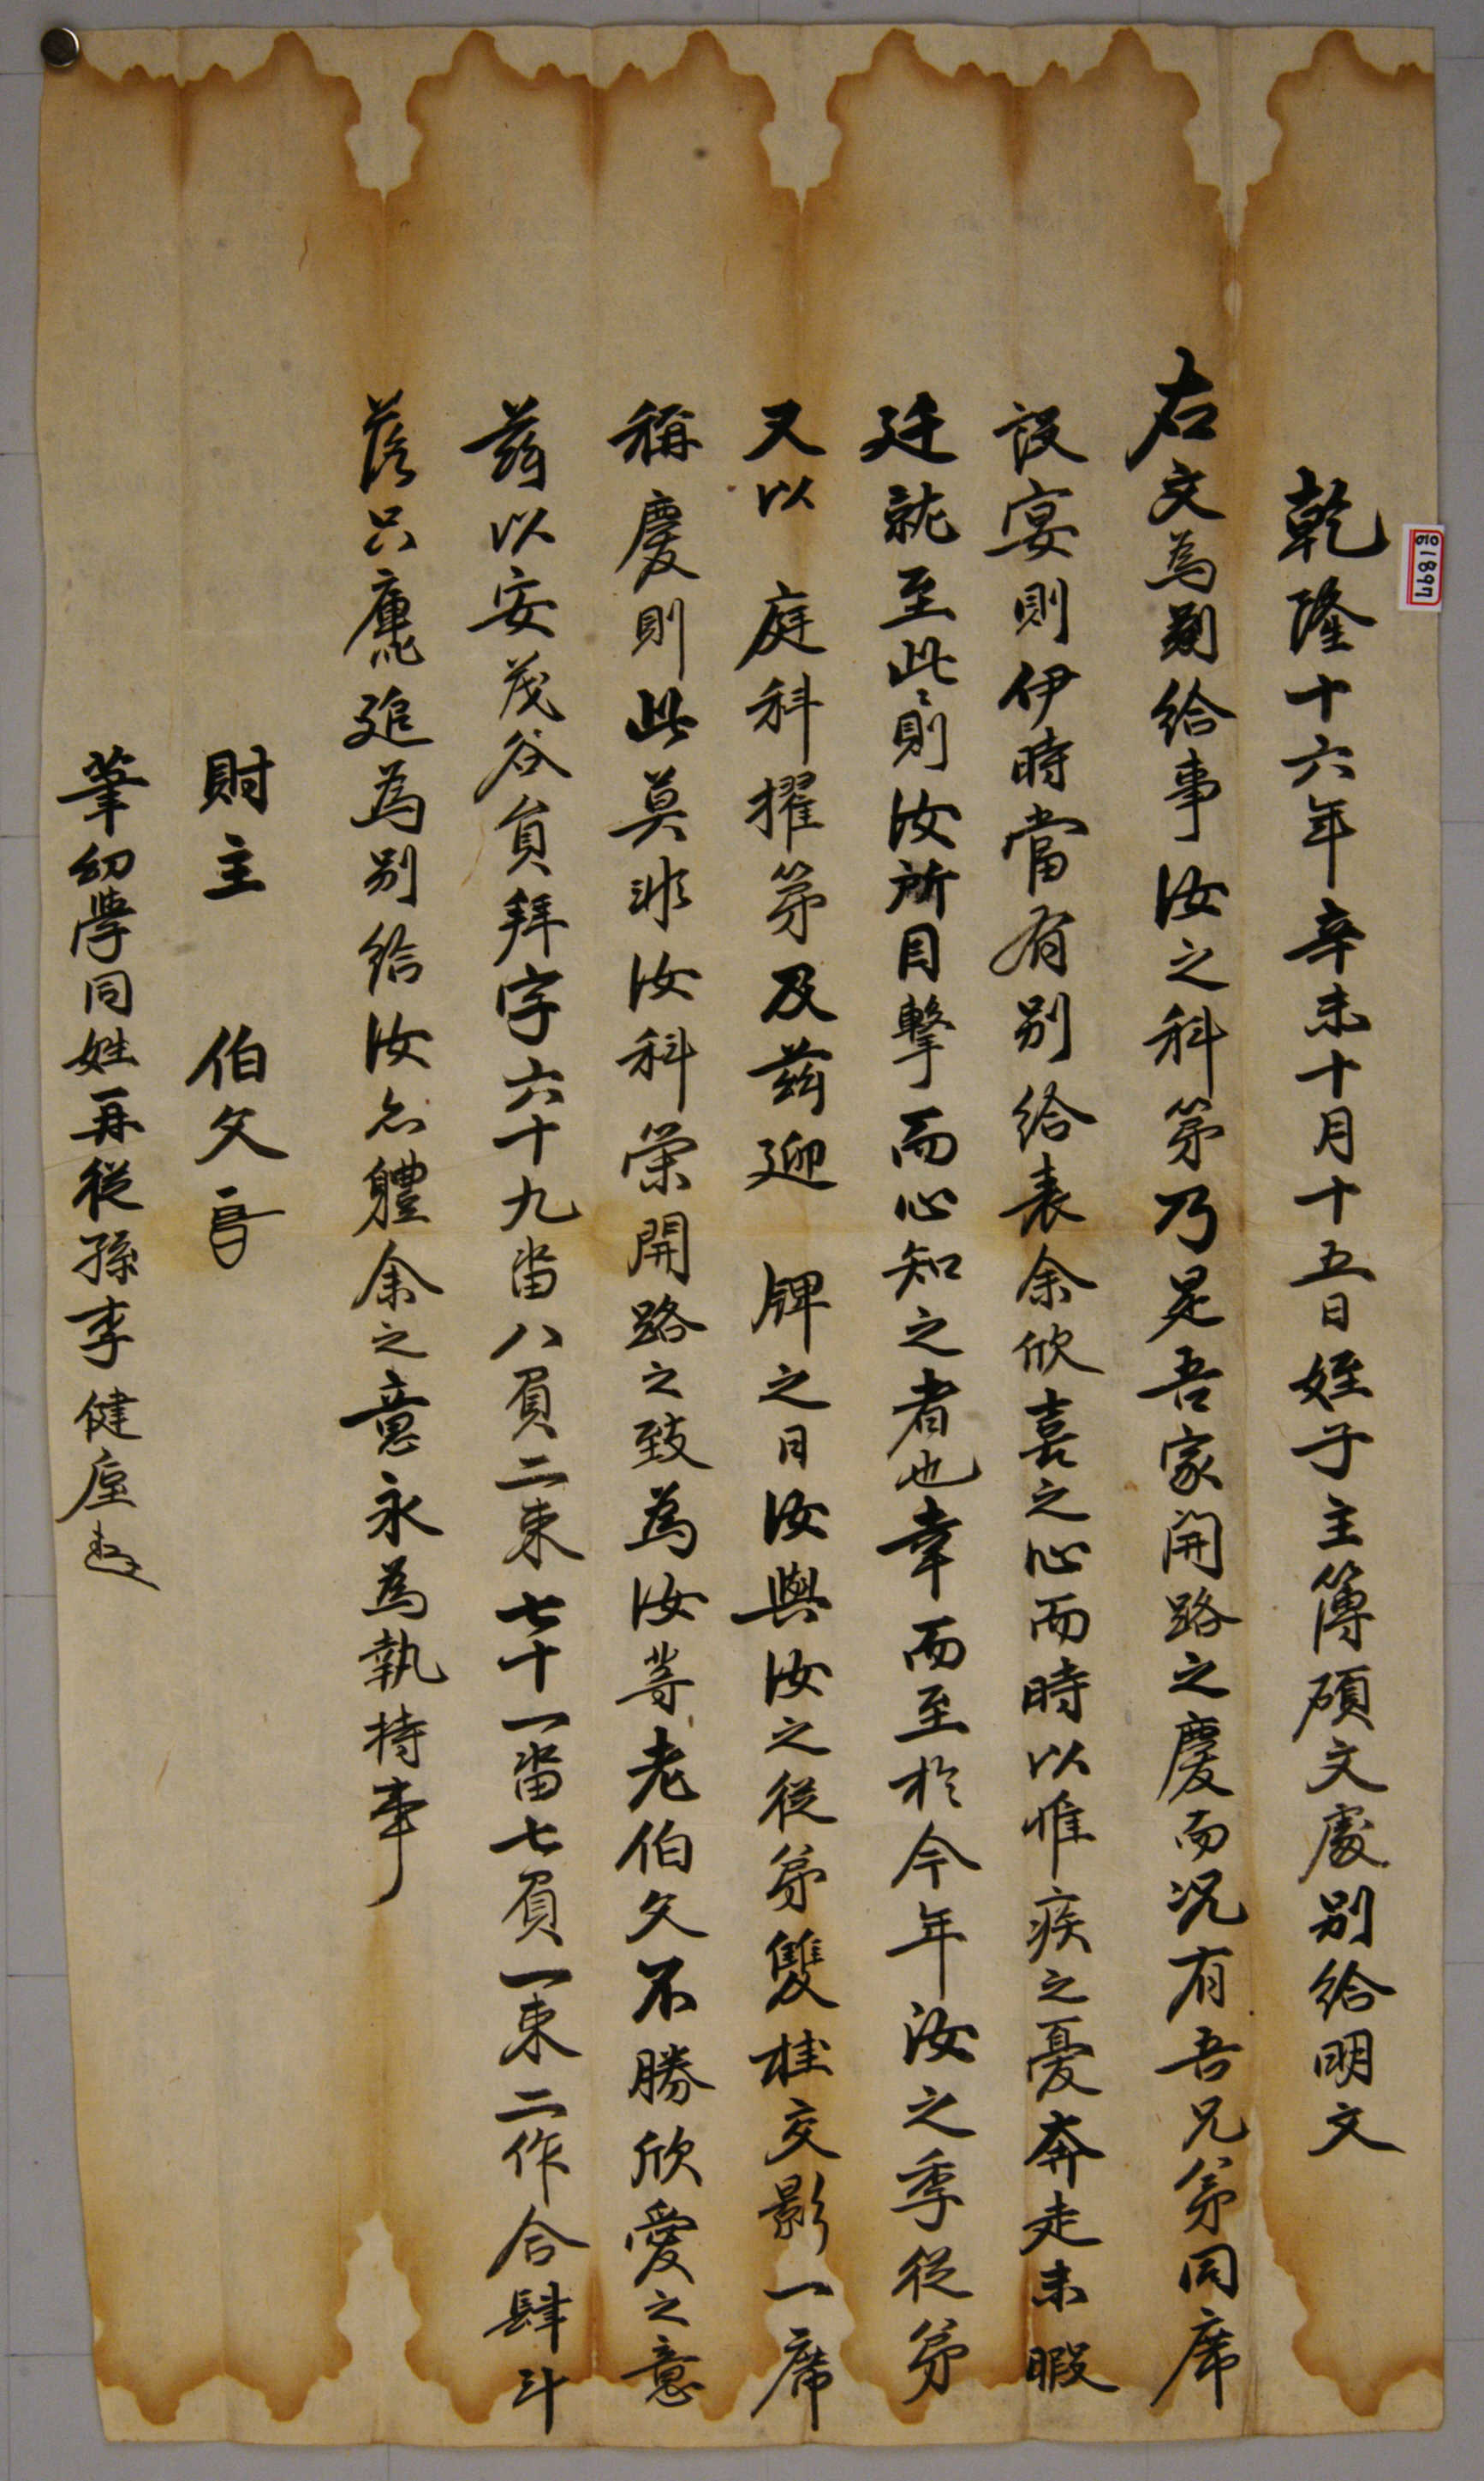 乾隆十六年辛未十月十五日姪子主簿碩文處別給明文
右文為別給事汝之科第乃是吾家開路之慶而况有吾兄弟同席
設宴則伊時當有別給表余欣喜之心而時以惟疾之憂奔走未暇
迁就至此此則汝所目擊而心知之者也幸而至於今年汝之季從弟
又以 庭科擢第及茲迎 牌之日汝與汝之從弟雙桂交影一席
稱慶則此莫非汝科榮開路之致為汝等老伯父不勝欣愛之意
茲以安茂谷員拜字六十九畓八負二束七十一畓七負一束二作合肆斗
落只庫乙追為別給汝念體余之意永為執持事
財主 伯父
筆幼學同姓再從孫李健
고1897